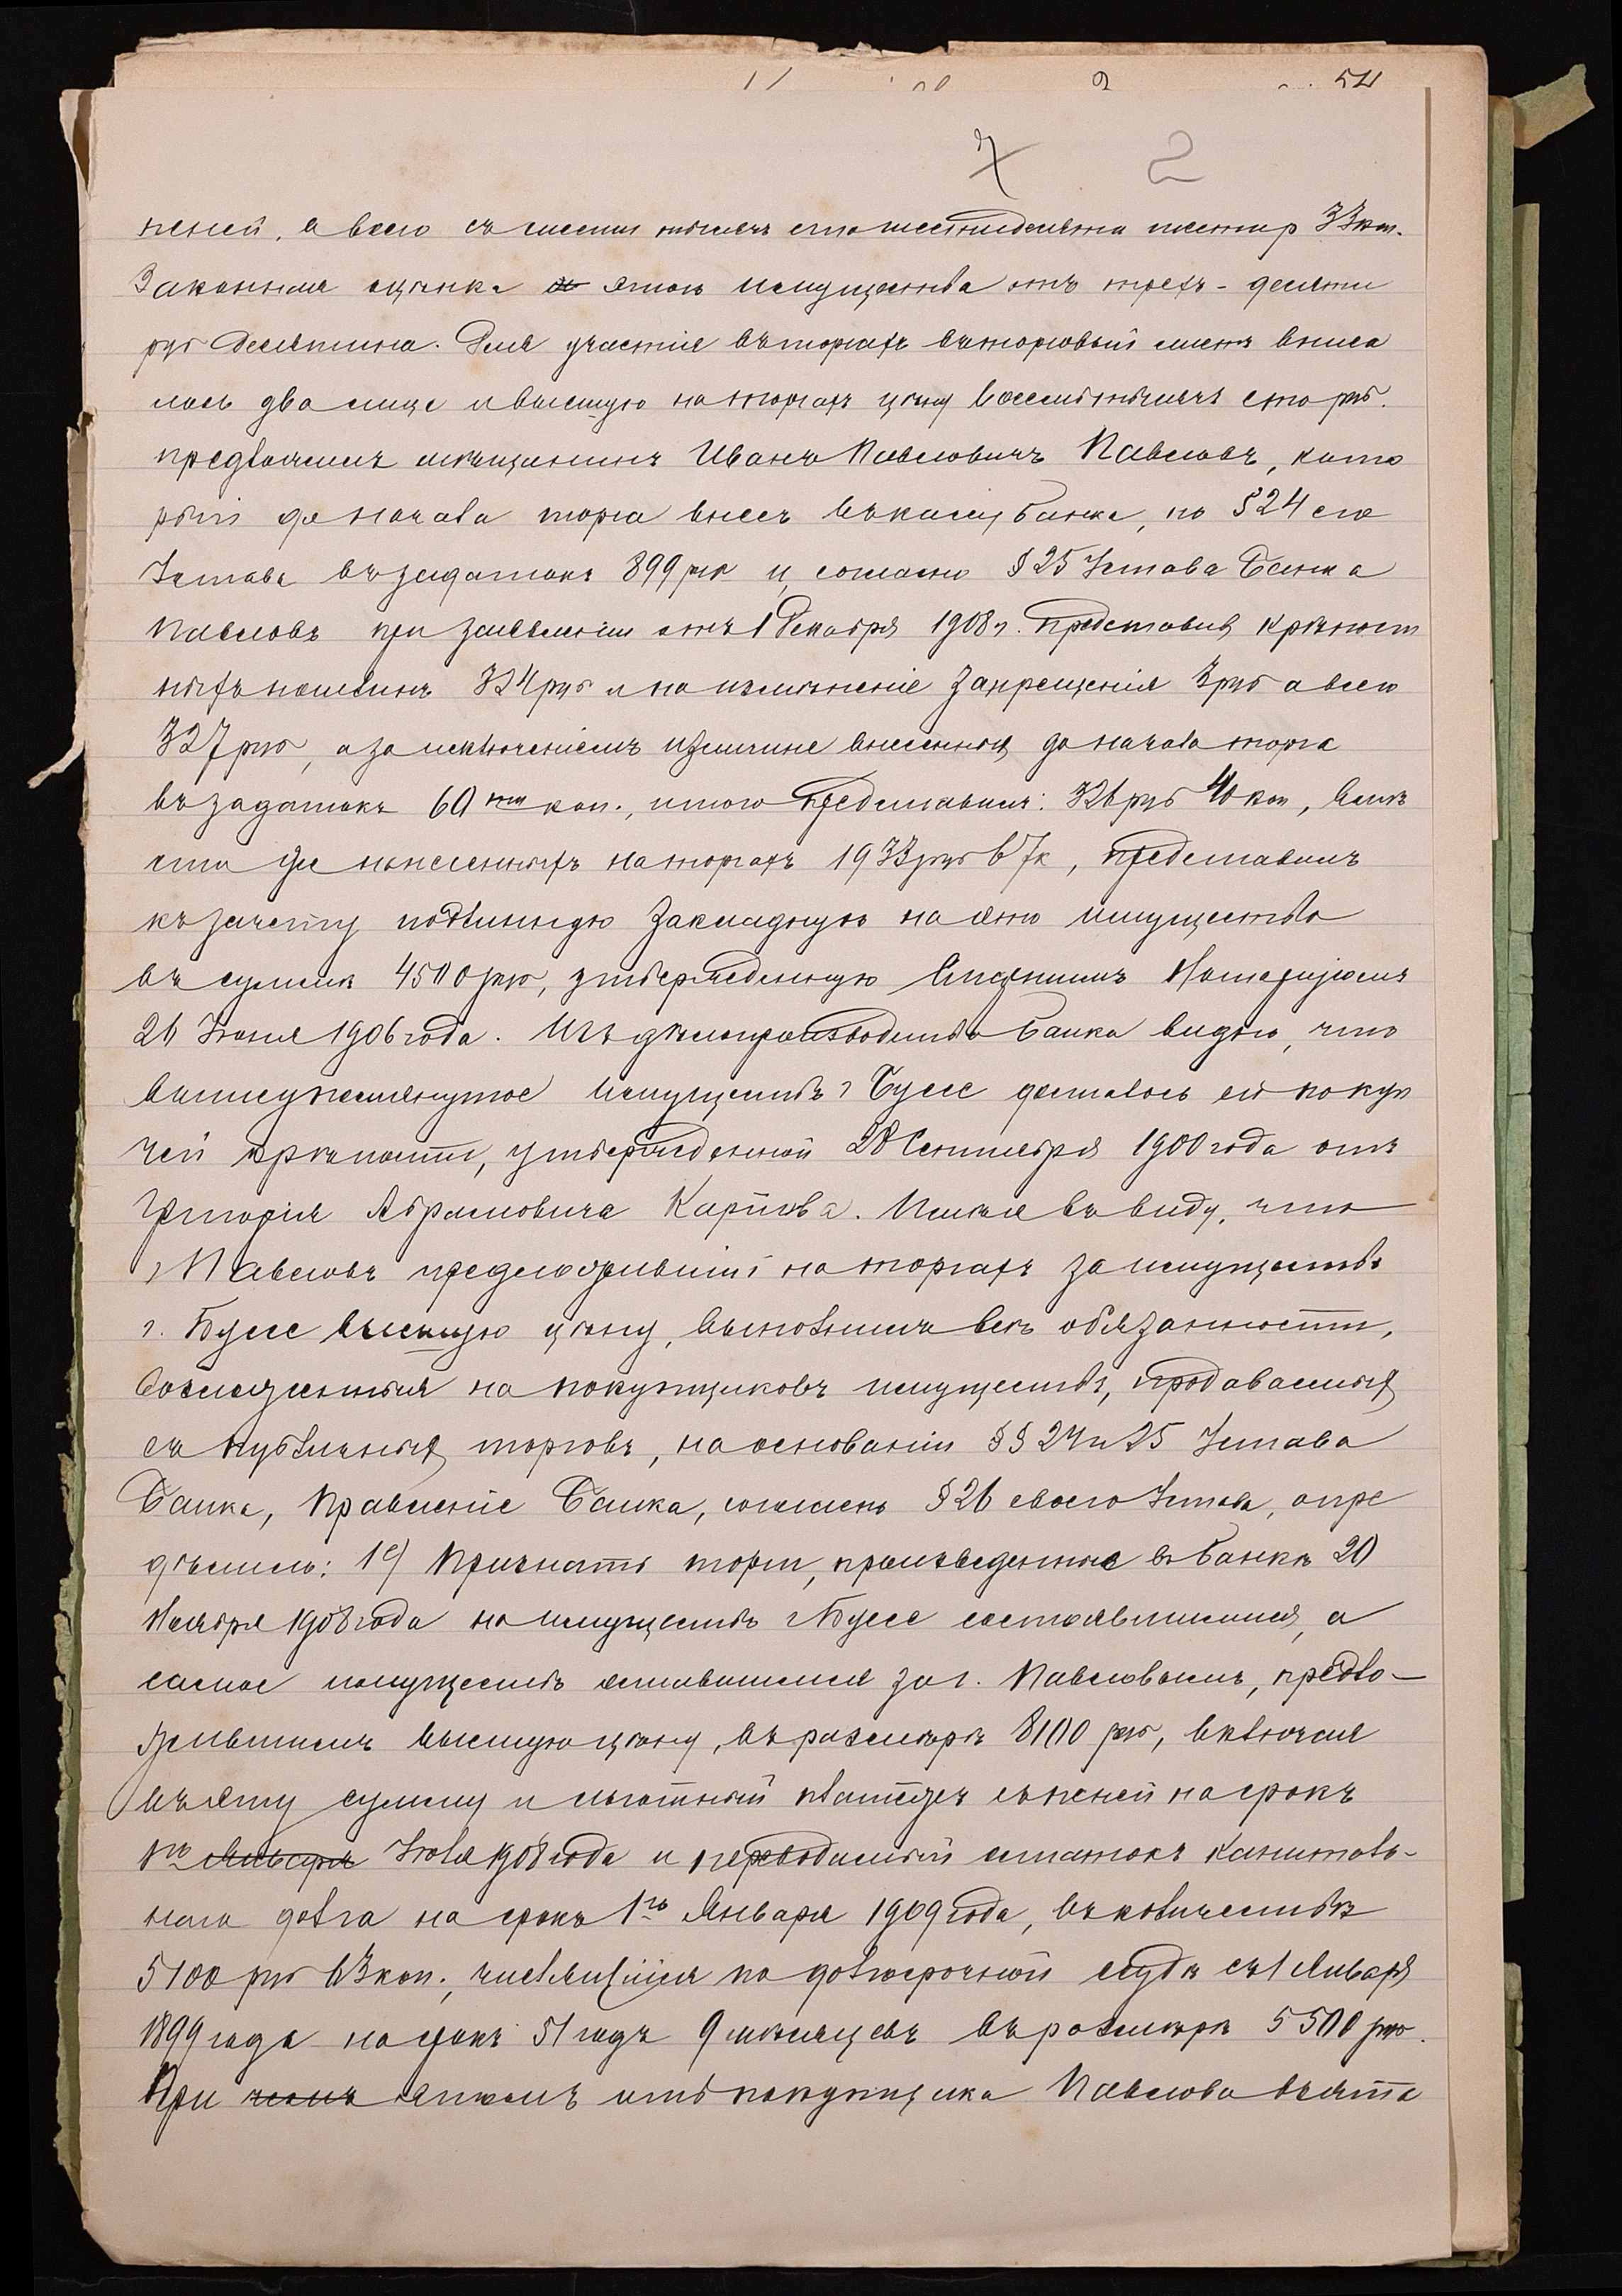 54
2
пеней, а всего съ шести тысячъ сто шестидесяти 33 коп.
Законная оцѣнка этого имущества отъ трехъ - десяти
руб десятина. Для участія въ торгахъ въ торговый листъ вписа
лось два лица и высшую на торгахъ цѣну восемь тысячъ сто руб.
предложилъ мѣщанинъ Иванъ Павловичъ Павловъ, кото
рый до начала торга внесъ въ кассу Банка, по § 24 его
Устава въ задатокъ 899 руб и, согласно § 25 Устава Банка
Павловъ при заявленіи отъ 1 Декабря 1908 г. представивъ крѣпост
ныхъ пошлинъ 324 руб и на измѣненіе запрещенія 3 руб а всего
327 руб, а за исключеніемъ излишне внесенныхъ до начала торга
въ задатокъ 60 коп., итого представилъ: 326 руб 40 коп, вмѣ
сто же понесенныхъ на торгахъ 1933 руб 67 к, представилъ
къ зачету подлинную закладную на это имущество
въ суммѣ 4500 руб, утвержденную Старшимъ Нотаріусомъ
26 Іюня 1906 года. Изъ дѣлопроизводства Банка видно, что
вышеупомянутое имущество г Буссе досталось ей по куп
чей крѣпости, утвержденной 28 Сентября 1900 года отъ
Григорія Абрамовича Карпова. Имѣя въ виду, что
г Павловъ предложившій на торгахъ за имущество
г. Буссе высшую цѣну, выполнилъ всѣ обязанности,
возлагаемыя на покупщиковъ имуществъ, продаваемыхъ
съ публичныхъ торговъ, на основаніи §§ 24 и 25 Устава
Банка, Правленіе Банка, согласно § 26 своего Устава, опре
дѣлило: 1е) Признать торги, произведенные въ Банкѣ 20
Ноября 1908 года на имущество г Буссе состоявшимися, а
самое имущество оставшимся за г. Павловымъ, предло-
жившимъ высшую цѣну, въ размѣрѣ 8100 руб, включая
въ эту сумму и льготный платежъ съ пеней на срокъ
1го Января Іюля 1908 года и переводимый остатокъ капиталь-
наго долга на срокъ 1го Января 1909 года, въ количествѣ
5100 руб 63 коп., числящійся по долгосрочной ссудѣ съ 1 Января
1899 года на срокъ 51 годъ 9 мѣсяцевъ въ размѣрѣ 5500 руб.
При чемъ этомъ отъ покупщика Павлова взята